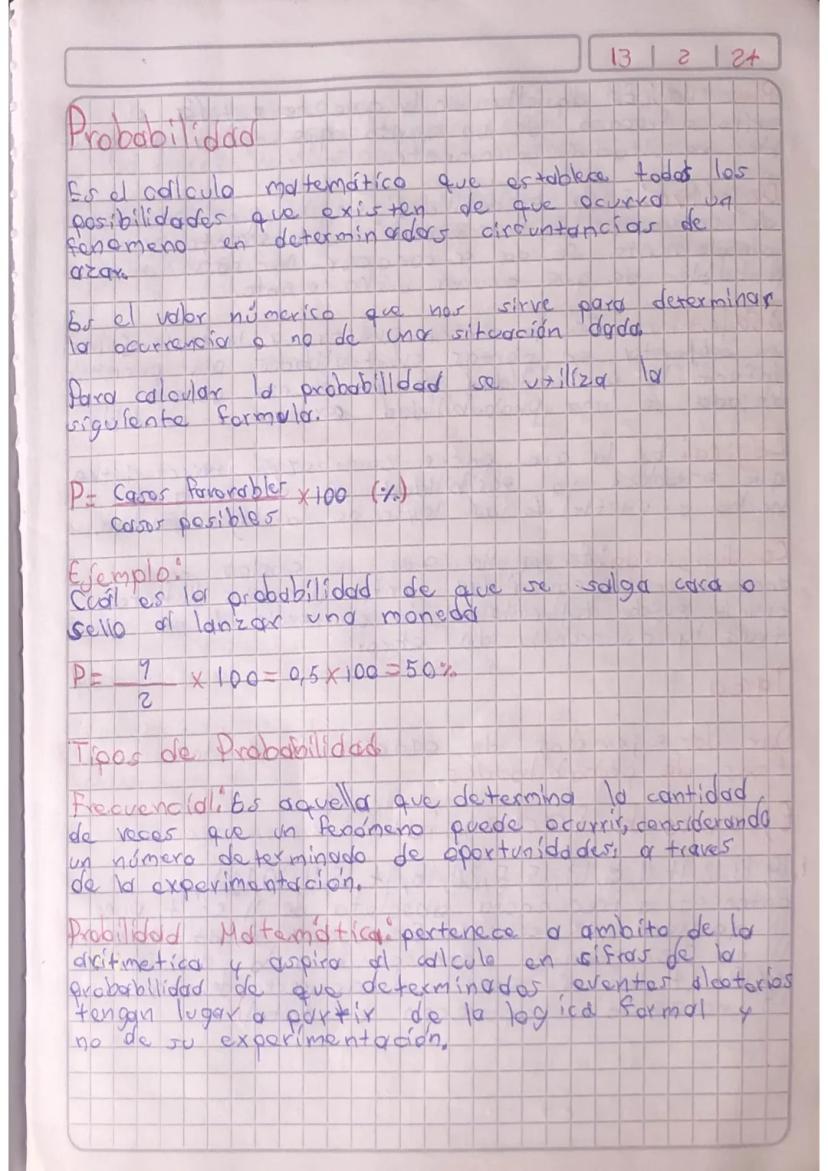 13 | 2 | 24
Probabilidad
Es el cálculo matemático que establece todas las
posibilidades que existen de que ocurra un
fenómeno en determinadas circuntancias de
azar.
Es el valor númerico que nos sirve para determinar
la ocurrencia o no de una situación dada
Para calcular la probabilidad se utiliza la
siguiente formula.
P= Casos Favorables x100 (%)
Casos posibles
Ejemplo:
Cuál es la probabilidad de que se salga cara o
sello al lanzar una moneda
P= 1 x 100 = 0,5 x 100 = 50%
2
Tipos de Probabilidad
Frecuencial: Es aquella que determina la cantidad
de veces que un fenómeno puede ocurrir, considerando
un número determinado de oportunidades, a traves
de la experimentación.
Probilidad Matemática: pertenece a ambito de la
aritmetica y aspira al calculo en sifras de la
probabilidad de que determinados eventos aleatorios
tengan lugar a partir de la logica formal y
no de su experimentación.